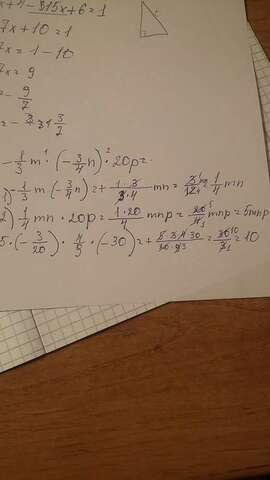 x+4-3,5x+6=1
7x+10=1
7x=1-10
7x=9
=-9/7
-1/3 m · (-3/4 n) · 20p=
1) -1/3 m · (-3/4 n)=+ 1·3/3·4 mn= 3/12 = 1/4 mn
2) 1/4 mn · 20p= 1·20/4 mnp = 20/4 mnp = 5mnp
5 · (-3/20) · 4/9 · (-30)=+ 5·3·4·30/20·9 = 30/3 = 10